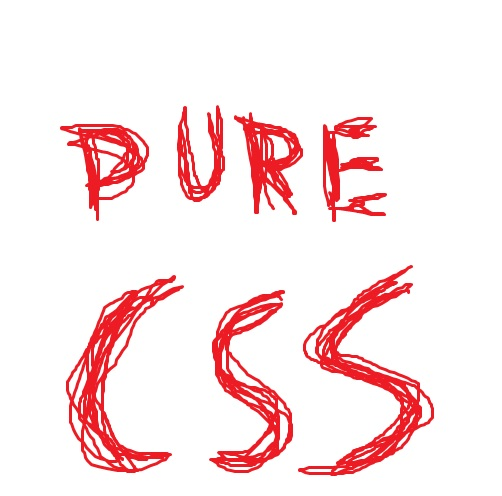 PURE
CSS